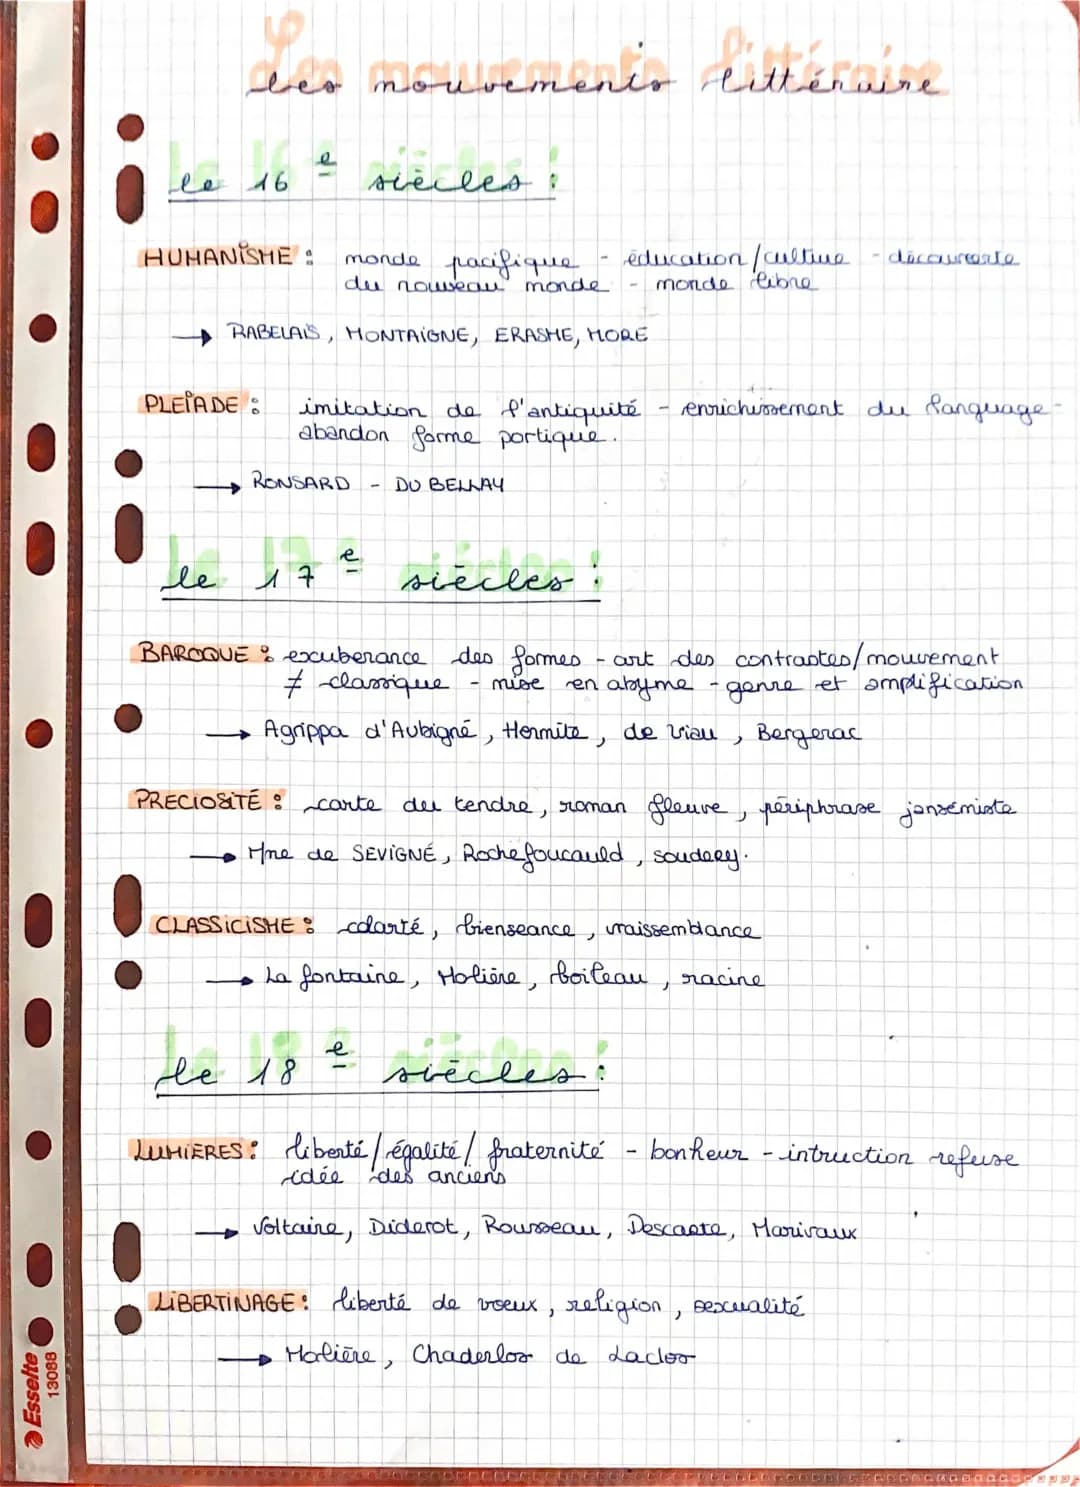 Les mouvements littéraire
le 16e siècles :
HUMANISME : monde pacifique - éducation/culture - découverte
du nouveau monde - monde libre
→ RABELAIS, MONTAIGNE, ERASME, MORE
PLEÏADE : imitation de l'antiquité - enrichissement du language -
abandon forme portique.
→ RONSARD - DU BELLAY
le 17e siècles :
BAROQUE : excuberance des formes - art des contrastes/mouvement
≠ classique - mise en abyme - genre et amplification
→ Agrippa d'Aubigné, Hermite, de Viau, Bergerac
PRECIOSITÉ : carte du tendre, roman fleuve, périphrase janséniste
→ Mme de SEVIGNÉ, Rochefoucauld, soudery.
CLASSICISME : clarté, bienseance, vraissemblance
→ La fontaine, Molière, boileau, racine
le 18e siècles :
LUMIERES : liberté/égalité/fraternité - bonheur - intruction refuse
idée des anciens
→ Voltaire, Diderot, Rousseau, Descarte, Marivaux
LIBERTINAGE : liberté de voeux, religion, sexualité
→ Molière, Chaderlos de Laclos
Esselte
13088